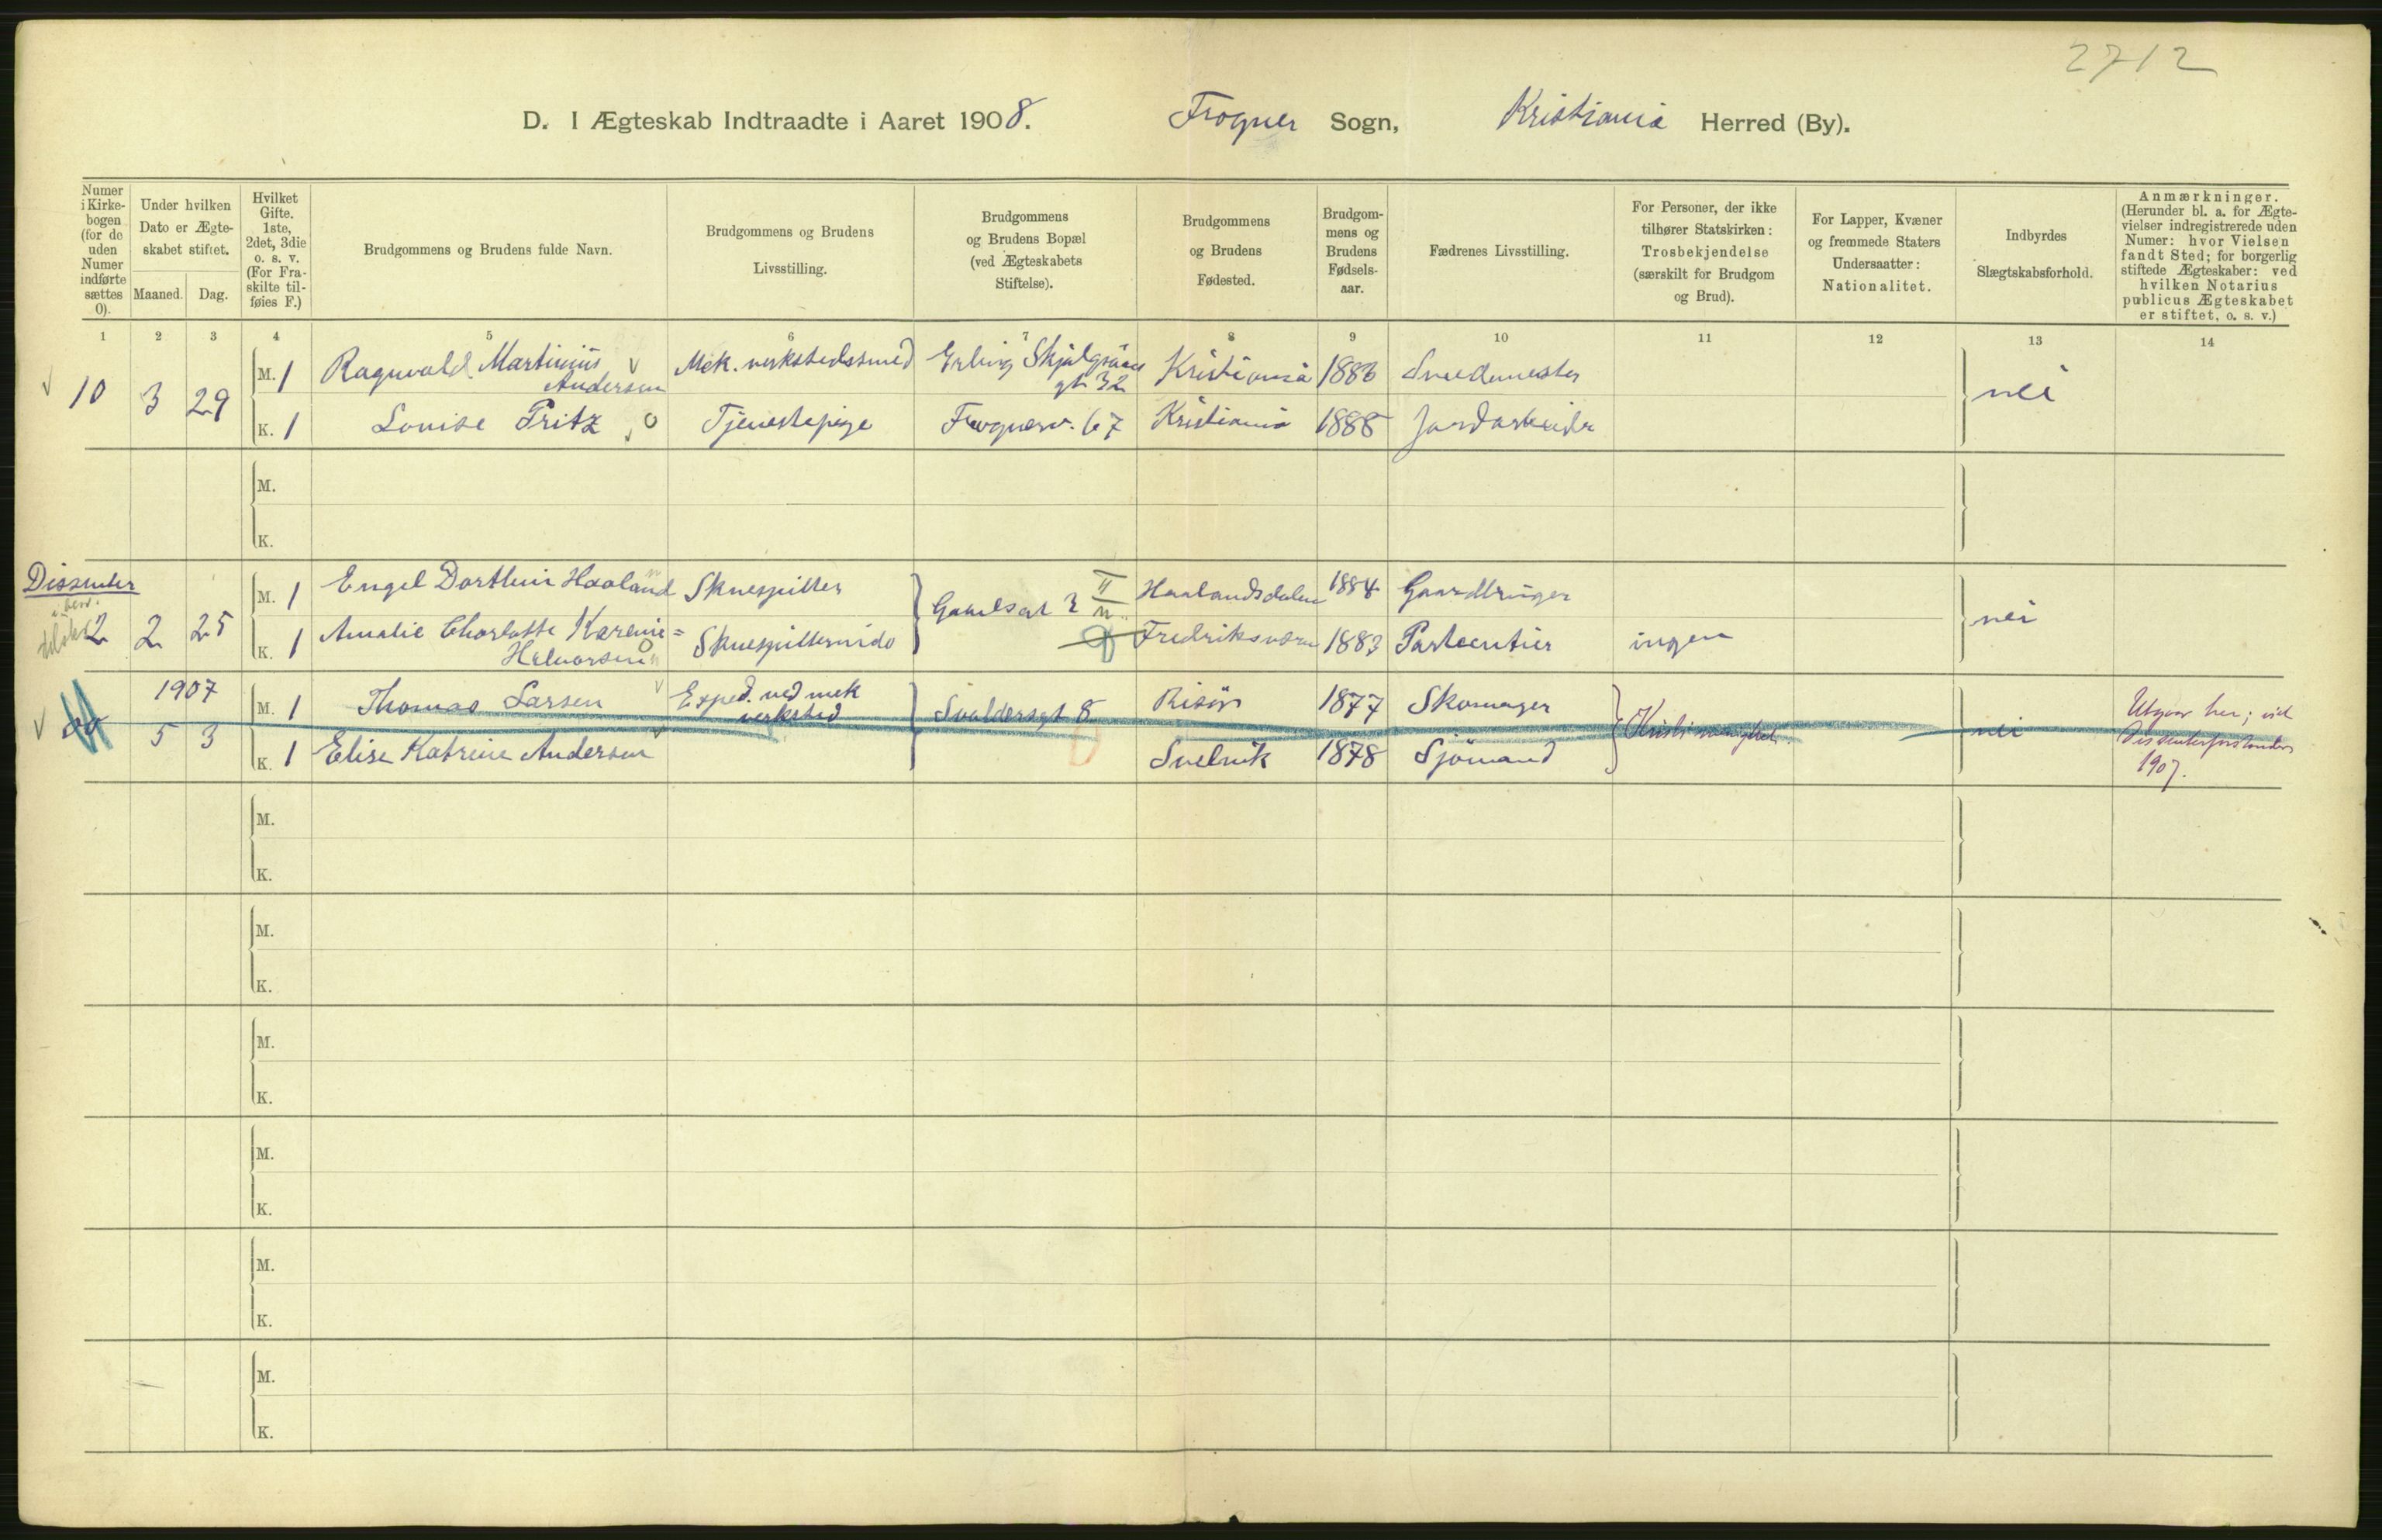 2712
D. I Ægteskab Indtraadte i Aaret 1908. Frogner Sogn, Kristiania Herred (By).
Numer i Kirkebogen (for de uden Numer indførte sættes 0).
Under hvilken Dato er Ægteskabet stiftet.
Maaned. Dag.
Hvilket Gifte. 1ste, 2det, 3die o. s. v. (For Fraskilte tilføies F.)
Brudgommens og Brudens fulde Navn.
Brudgommens og Brudens Livsstilling.
Brudgommens og Brudens Bopæl (ved Ægteskabets Stiftelse).
Brudgommens og Brudens Fødested.
Brudgommens og Brudens Fødselsaar.
Fædrenes Livsstilling.
For Personer, der ikke tilhører Statskirken: Trosbekjendelse (særskilt for Brudgom og Brud).
For Lapper, Kvæner og fremmede Staters Undersaatter: Nationalitet.
Indbyrdes Slægtskabsforhold.
Anmærkninger. (Herunder bl. a. for Ægtevielser indregistrerede uden Numer: hvor Vielsen fandt Sted; for borgerlig stiftede Ægteskaber: ved hvilken Notarius publicus Ægteskabet er stiftet, o. s. v.)
1 2 3 4 5 6 7 8 9 10 11 12 13 14
10 3 29 M. 1 Ragnvald Martinius Andersen Mek. verkstedssmed Erling Skjalgssøns gt 32 Kristiania 1886 Smedmester nei
K. 1 Louise Pritz Tjenestepige Frognerv. 67 Kristiania 1888 Jordarbeider
M.
K.
Dissenter
2 2 25 M. 1 Engel Dorthin Haaland Skuespiller 3 II Haalandsdalen 1884 Gaardbruger nei
K. 1 Amalie Charlotte Karenie Halvorsen Skuespillerinde Fredriksværn 1883 Partecutier ingen
1907
00 5 3 M. 1 Thomas Larsen Exped. ved mek verksted Svoldersgt 8 Risør 1877 Skomager nei Utgaar her; vid Dissenterforstander 1907.
K. 1 Elise Katrine Andersen Svelvik 1878 Sjömand
M.
K.
M.
K.
M.
K.
M.
K.
M.
K.
M.
K.